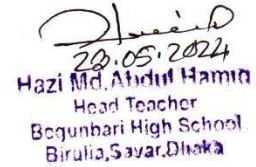 22.05.2022
Hazi Md. Abdul Hamid
Head Teacher
Begunbari High School
Birulia, Savar, Dhaka